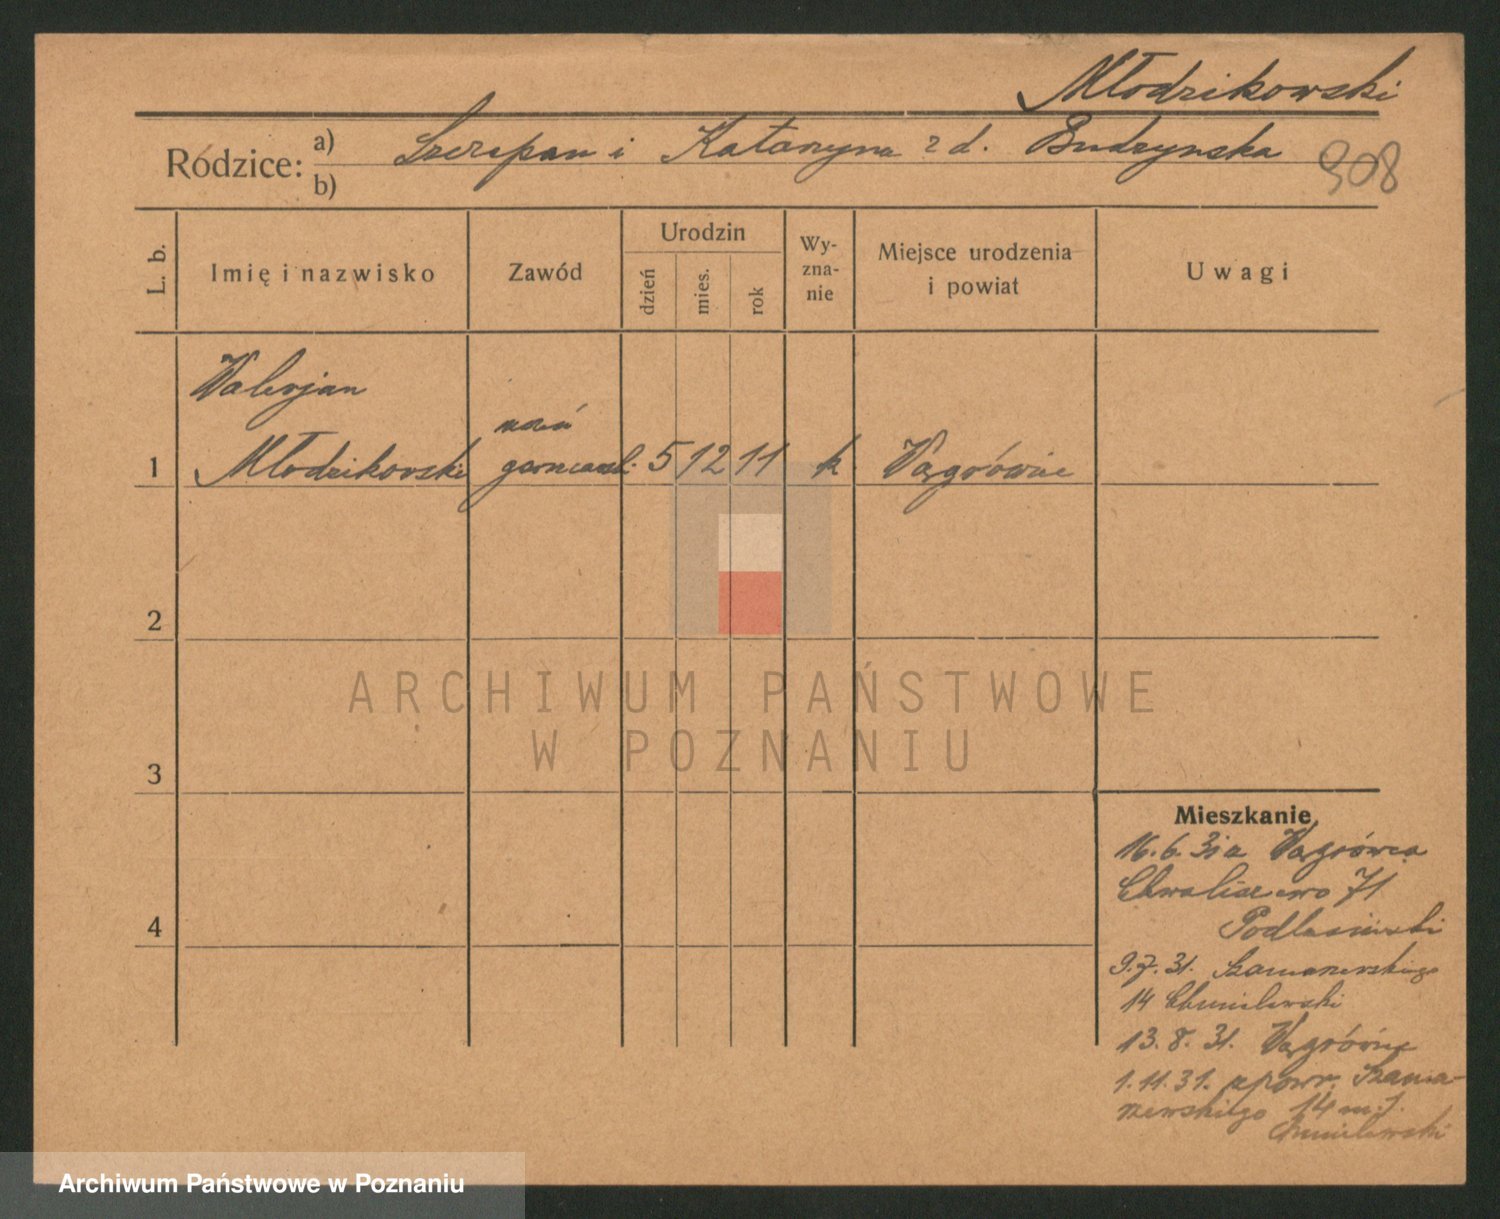 Młodzikowski
Rodzice: a) Szczepan i Katarzyna z d. Budzynska
b)
908
L. b.
Imię i nazwisko
Zawód
Urodzin
dzień
mies.
rok
Wy-
zna-
nie
Miejsce urodzenia
i powiat
Uwagi
Walerjan
1 Młodzikowski
uczeń
garncarsk. 5 12 11 k Wągrówiec
2
3
4
ARCHIWUM PAŃSTWOWE
W POZNANIU
Mieszkanie
16.6.31 z Wągrówca
Chwaliszewo 71
9.7.31. Szamarzewskiego
14 Chmielewski
13.8.31. Wągrówiec
1.11.31. z powr. Szama-
rzewskiego 14 m.
Chmielewski
Archiwum Państwowe w Poznaniu